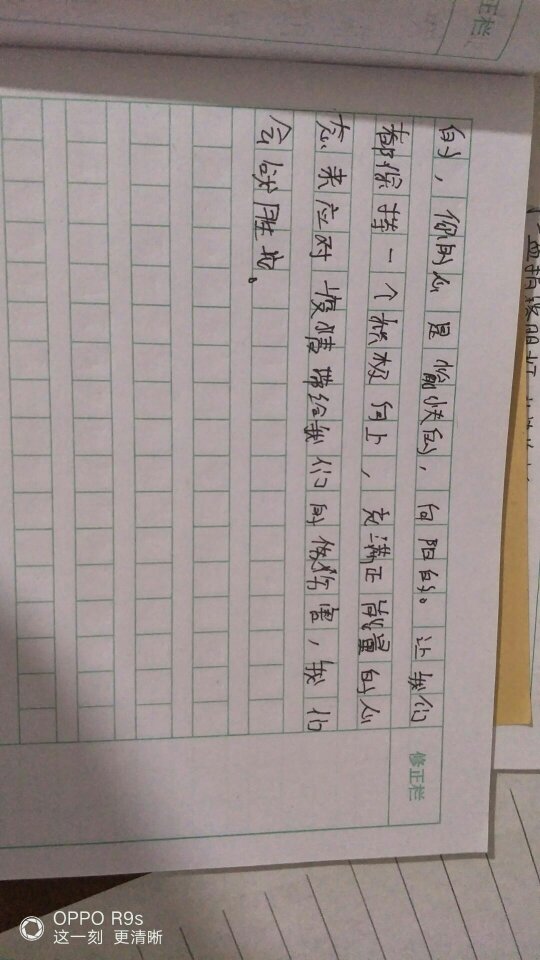 的，你的心是愉快的，向阳的。让我们
都保持一个积极向上，充满正能量的心
态来应对疫情带给我们的伤害，我们
会战胜它。
修正栏
正栏
OPPO R9s
这一刻 更清晰